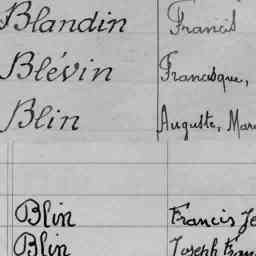 Blandin Francis
Blévin Francisque,
Blin Auguste, Mar
Blin Francis Je
Blin Joseph Fran